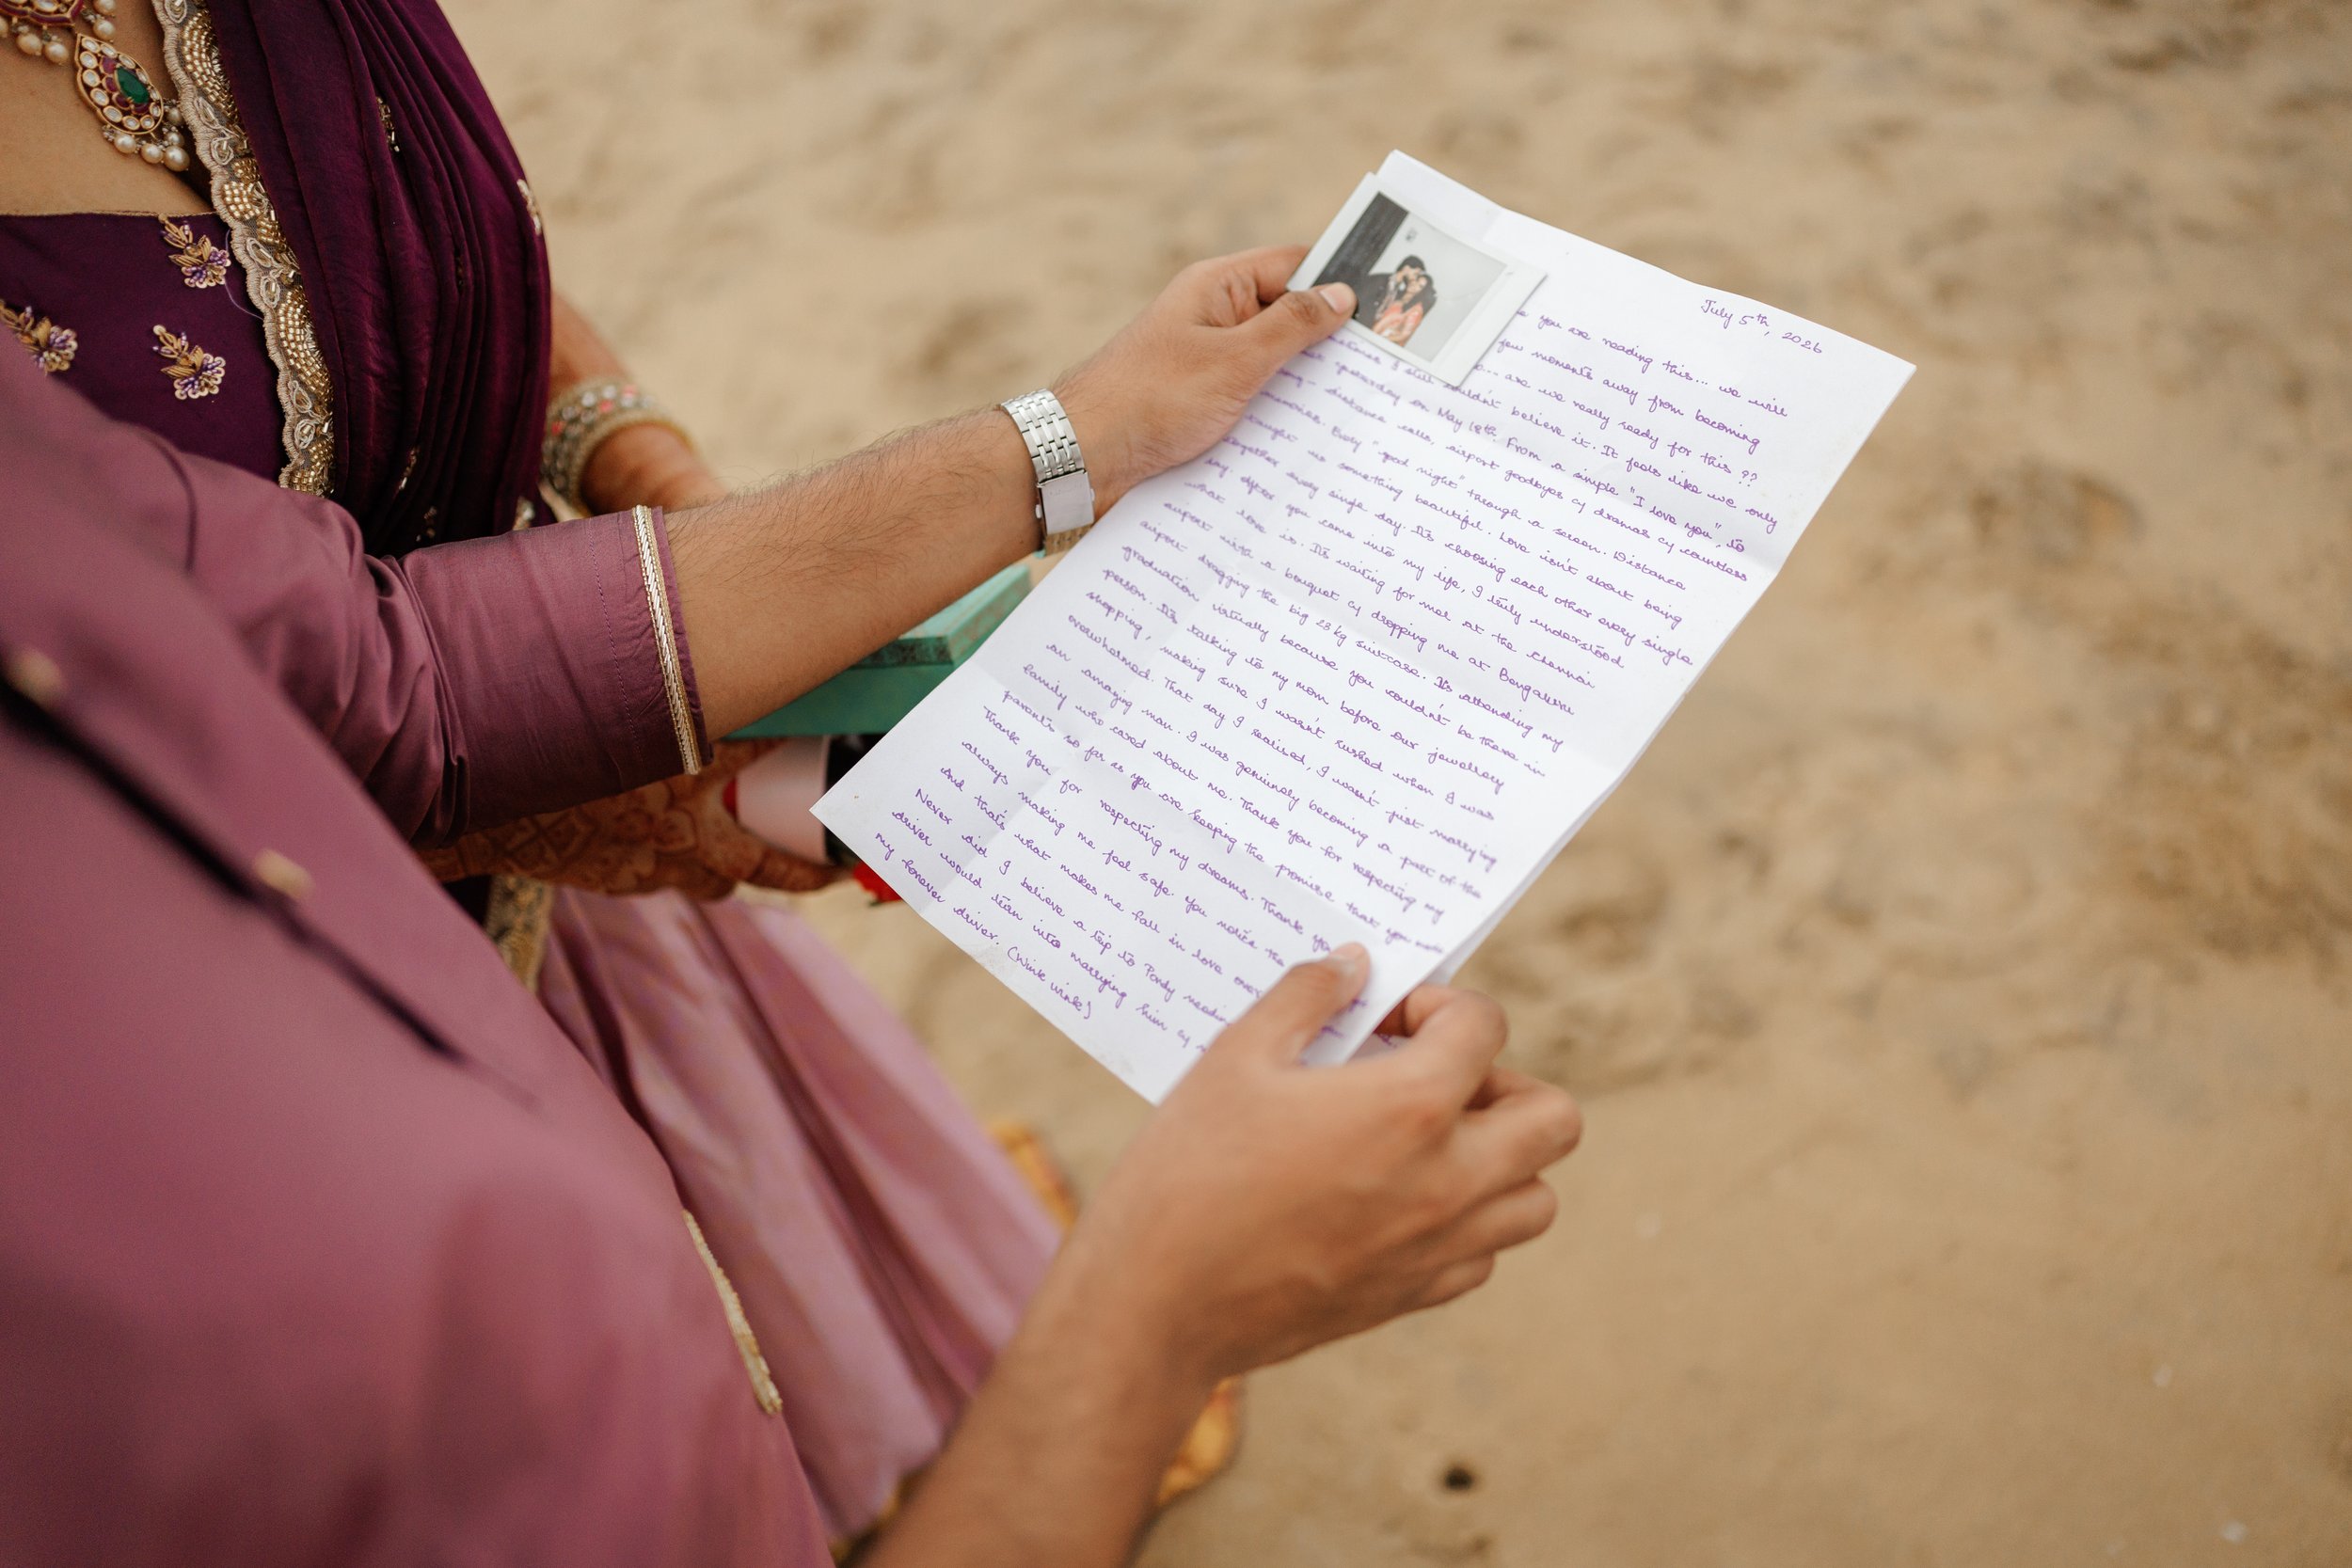 July 5th, 2026
you are reading this... we will
few moments away from becoming
are we really ready for this ??
I still couldn't believe it. It feels like we only
yesterday on May 18th. From a simple "I love you", to
distance calls, airport goodbyes & dramas & countless
memories. Every "good night" through a screen. Distance
taught us something beautiful. Love isn't about being
together every single day. It's choosing each other every single
day. After you came into my life, I truly understood
what love is. It's waiting for me at the Chennai
airport with a bouquet & dropping me at Bengaluru
airport dragging the big 23 kg suitcase. It's attending my
graduation virtually because you couldn't be there in
person. It's talking to my mom before our jewellery
shopping, making sure I wasn't rushed when I was
overwhelmed. That day I realised, I wasn't just marrying
an amazing man. I was genuinely becoming a part of the
family who cared about me. Thank you for respecting my
parents so far as you are keeping the promise that you
Thank you for respecting my dreams. Thank
always making me feel safe. You notice the
And that's what makes me fall in love over
Never did I believe a trip to Pondy
driver would turn into marrying him &
my forever driver. (wink wink)